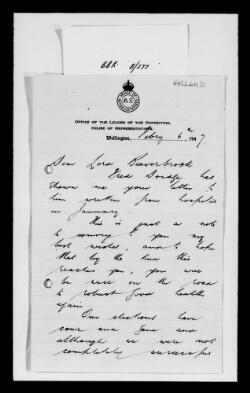 BBK B/277
HOLLAND
OFFICE OF THE LEADER OF THE OPPOSITION,
HOUSE OF REPRESENTATIVES,
Wellington, Febry 6th 1947.
Dear Lord Beaverbrook
Fred Doidge has
shown me your letter to
him written from hospital
in January.
This is just a note
to convey to you my
best wishes, and to hope
that by the time this
reaches you, you will
be well on the road
to robust good health
again.
Our elections have
come and gone and
although we were not
completely successful